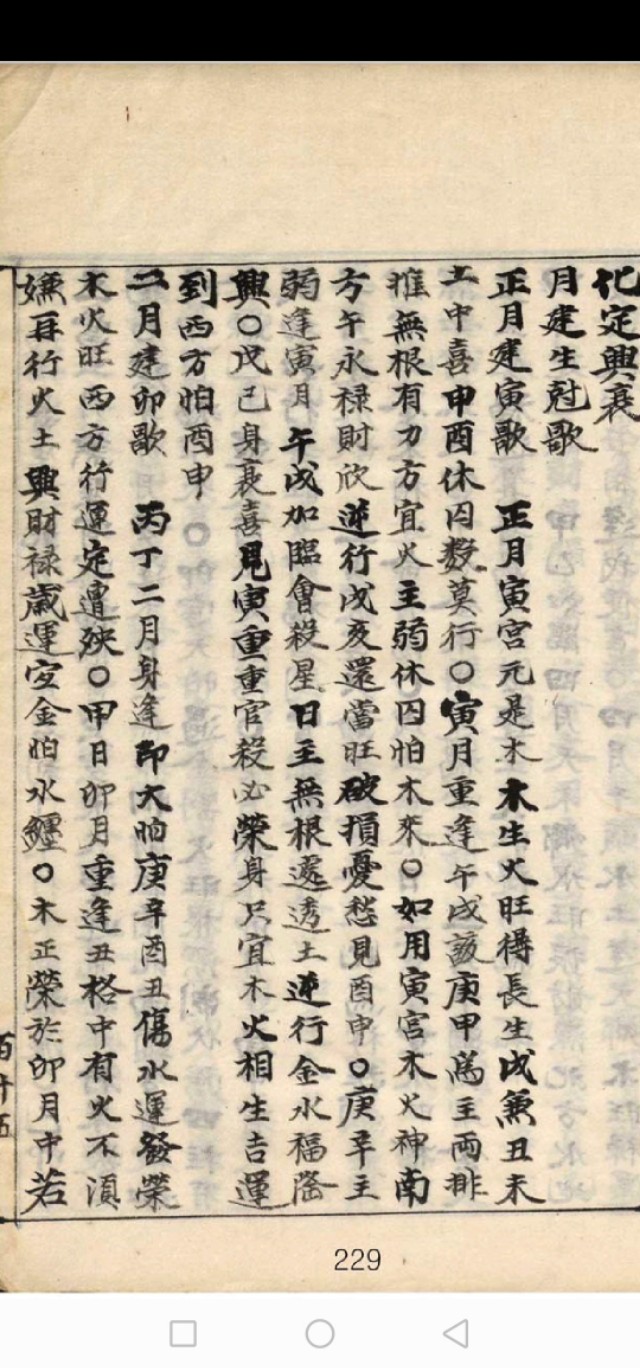 化定興衰
月建生尅歌
正月建寅歌 正月寅宮元是木木生火旺得長生戌無丑未
土中喜申酉休囚數莫行○寅月重逢午戌該庚甲為主兩排
推無根有力方宜火主弱休囚怕木來○如用寅宮木火神南
方午永祿財欣逆行戌亥還當旺破損憂愁見酉申○庚辛主
弱逢寅月午戌加臨會殺星日主無根處透土逆行金水福陰
興○戊己身衰喜見寅重重官殺必榮身只宜木火相生吉運
到西方怕酉申
二月建卯歌 丙丁二月身逢印大怕庚辛酉丑傷水運發榮
木火旺西方行運定遭殃○甲日卯月重逢丑格中有火不湏
嫌再行火土興財祿歲運安金怕水纏○木正榮於卯月中若
百十五
229